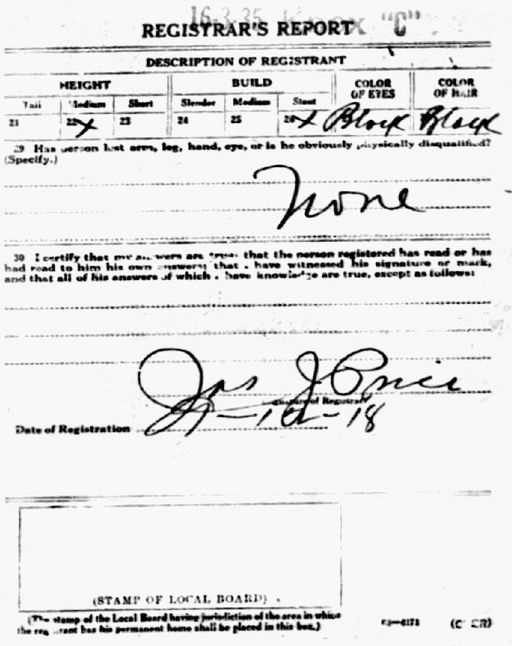 16-3-35 Knox "C"
REGISTRAR'S REPORT
DESCRIPTION OF REGISTRANT
HEIGHT BUILD COLOR OF EYES COLOR OF HAIR
Tall Medium Short Slender Medium Stout
21 22 X 23 24 25 26 X Black Black
29 Has person lost arm, leg, hand, eye, or is he obviously physically disqualified?
(Specify.)
None
30 I certify that my answers are true; that the person registered has read or has
had read to him his own answers; that I have witnessed his signature or mark,
and that all of his answers of which I have knowledge are true, except as follows:
Jas J Price
Signature of Registrar
Date of Registration 9-12-18
(STAMP OF LOCAL BOARD)
(The stamp of the Local Board having jurisdiction of the area in which
the registrant has his permanent home shall be placed in this box.)
03-6171 (OVER)